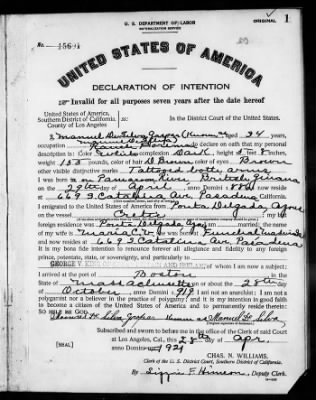 U. S. DEPARTMENT OF LABOR
NATURALIZATION SERVICE
ORIGINAL 1
No.
UNITED STATES OF AMERICA
DECLARATION OF INTENTION
Invalid for all purposes seven years after the date hereof
United States of America,
Southern District of California, ss:
County of Los Angeles
In the District Court of the United States.
I, Manuel De Silva aged 34 years,
occupation do declare on oath that my personal
description is: Color White, complexion Dark, height feet 8 inches,
weight pounds, color of hair D Brown, color of eyes Brown
other visible distinctive marks Tattooed both arms
I was born in British Guiana
on the 29th day of April, anno Domini; I now reside
at 669 S Catalina Av. Pasadena California.
I emigrated to the United States of America from Ponta Delgada
on the vessel Cretic; my last
foreign residence was Ponta Delgada; I am married; the name
of my wife is Maria; she was born at Funchal Madeira
and now resides at 669 S Catalina Av. Pasadena
It is my bona fide intention to renounce forever all allegiance and fidelity to any foreign
prince, potentate, state, or sovereignty, and particularly to
GEORGE V of whom I am now a subject;
I arrived at the port of Boston, in the
State of Massachusetts, on or about the 28th day
of October, anno Domini; I am not an anarchist; I am not a
polygamist nor a believer in the practice of polygamy; and it is my intention in good faith
to become a citizen of the United States of America and to permanently reside therein:
SO HELP ME GOD.
Manuel De Silva known as Manuel De Silva
Subscribed and sworn to before me in the office of the Clerk of said Court
at Los Angeles, Cal., this 28th day of Apr.
[SEAL] anno Domini 1921
CHAS. N. WILLIAMS,
Clerk of the U. S. District Court, Southern District of California.
By Lizzie F. Hinson, Deputy Clerk.